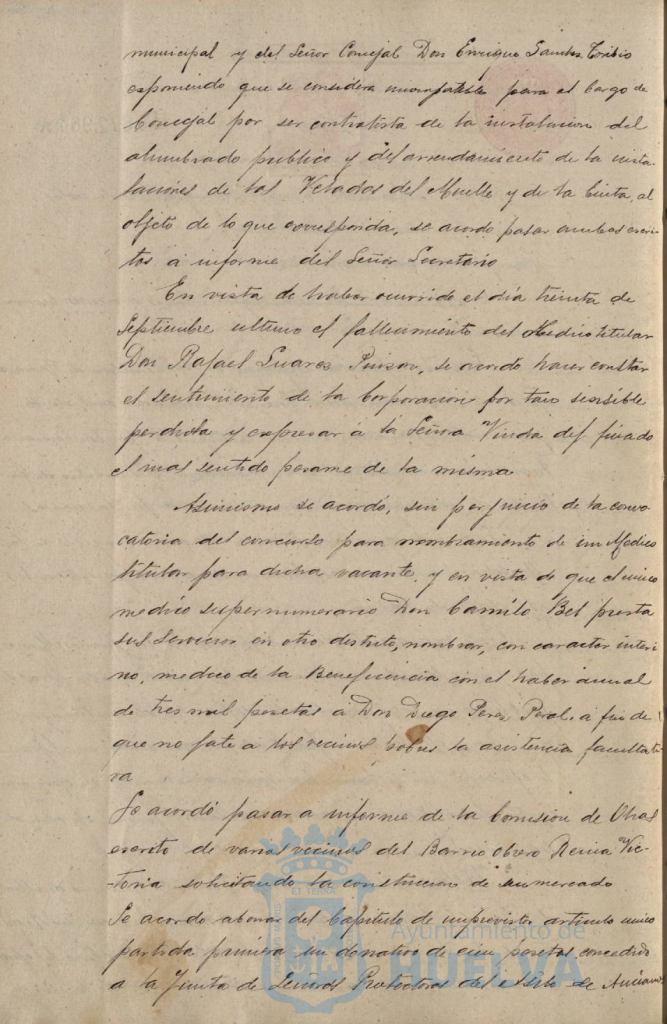 municipal y del Señor Concejal Don Enrique Santos Toribio
exponiendo que se considera incompatible para el cargo de
Concejal por ser contratista de la instalacion del
alumbrado publico y del arrendamiento de la insta-
laciones de las Veladas del Muelle y de la Cinta, al
objeto de lo que corresponda, se acordo pasar ambos escri-
tos á informe del Señor Secretario
En vista de haber ocurrido el dia treinta de
Septiembre ultimo el fallecimiento del Medico titular
Don Rafael Suarez, se acordo hacer constar
el sentimiento de la Corporacion por tan sensible
perdida y expresar á la Señora Viuda del finado
el mas sentido pesame de la misma
Asimismo se acordó, sin perjuicio de la convo-
catoria del concurso para nombramiento de un Medico
titular para dicha vacante, y en vista de que el unico
medico supernumerario Don Camilo Bel presta
sus servicios en otro distrito, nombrar, con caracter interi-
no, medico de la Beneficencia con el haber anual
de tres mil pesetas a Don Diego Perez Peral, á fin de
que no falte a los vecinos pobres la asistencia facultati-
va
Se acordó pasar a informe de la Comision de Obras
escrito de varios vecinos del Barrio Obrero Reina Vic-
toria solicitando la construccion de un mercado
Se acordo abonar del Capitulo de imprevistos, articulo unico
partida primera un donativo de cien pesetas concedido
a la Junta de Señoras Protectoras del Asilo de Ancianos
Ayuntamiento de
HUELVA